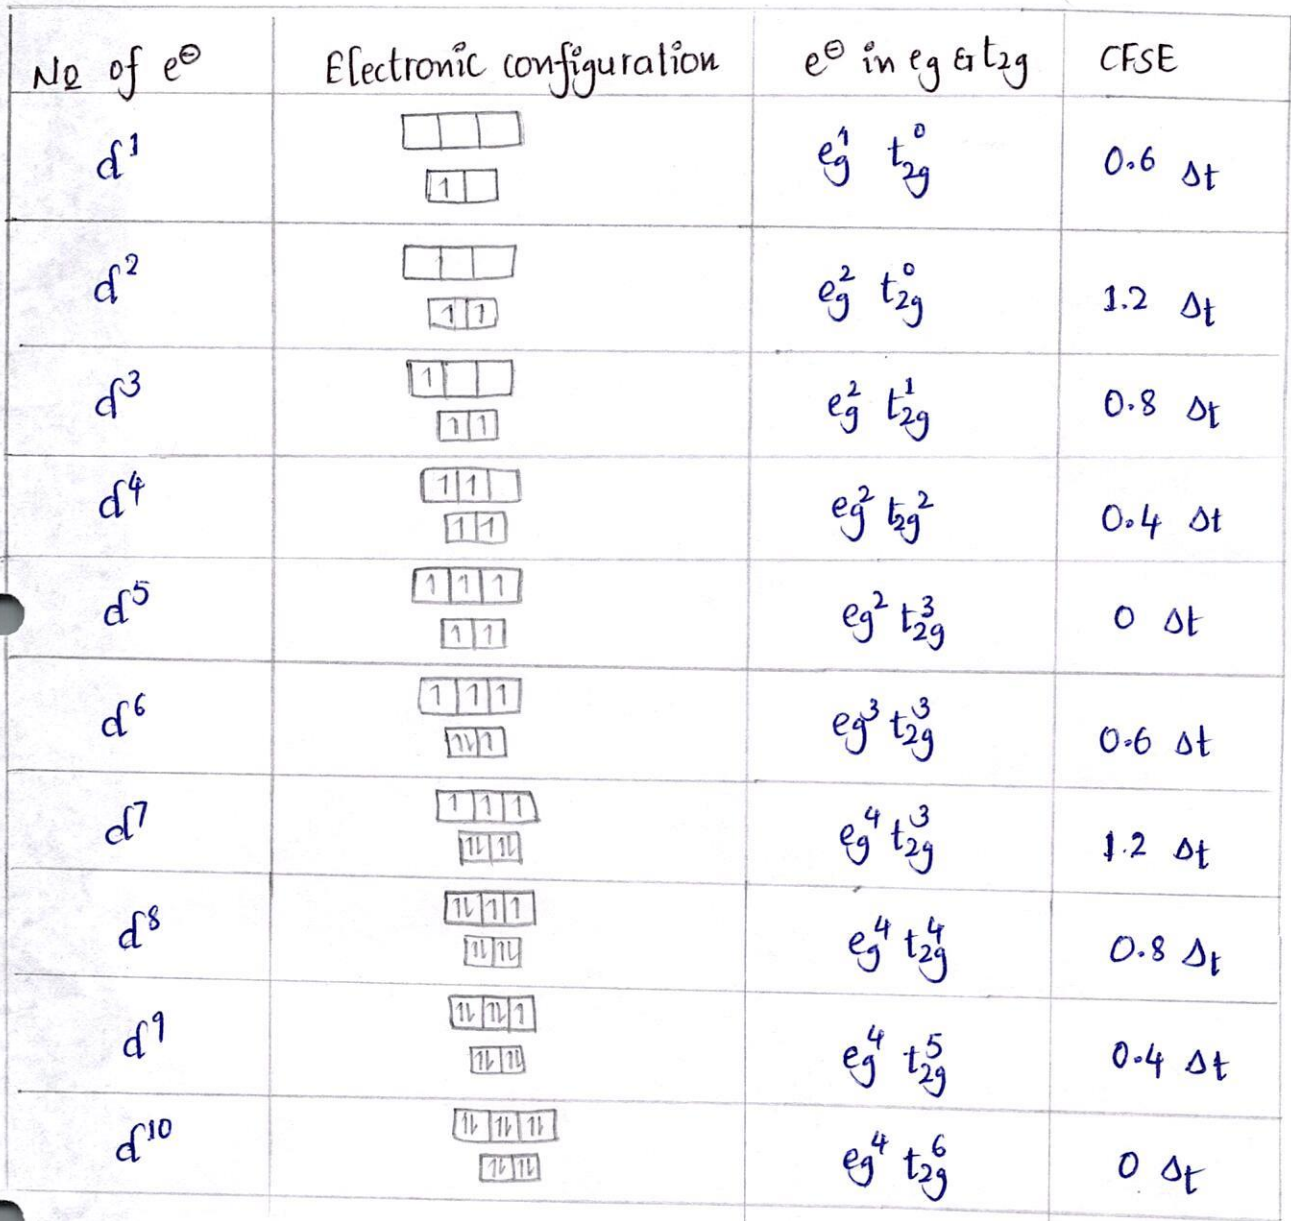 No of e⊖ Electronic configuration e⊖ in eg & t2g CFSE
d¹ 1 eg¹ t2g⁰ 0.6 Δt
d² 1 1 eg² t2g⁰ 1.2 Δt
d³ 1 1 1 eg² t2g¹ 0.8 Δt
d⁴ 1 1 1 1 eg² t2g² 0.4 Δt
d⁵ 1 1 1 1 1 eg² t2g³ 0 Δt
d⁶ 1 1 1 1⇂ 1 eg³ t2g³ 0.6 Δt
d⁷ 1 1 1 1⇂ 1⇂ eg⁴ t2g³ 1.2 Δt
d⁸ 1⇂ 1 1 1⇂ 1⇂ eg⁴ t2g⁴ 0.8 Δt
d⁹ 1⇂ 1⇂ 1 1⇂ 1⇂ eg⁴ t2g⁵ 0.4 Δt
d¹⁰ 1⇂ 1⇂ 1⇂ 1⇂ 1⇂ eg⁴ t2g⁶ 0 Δt